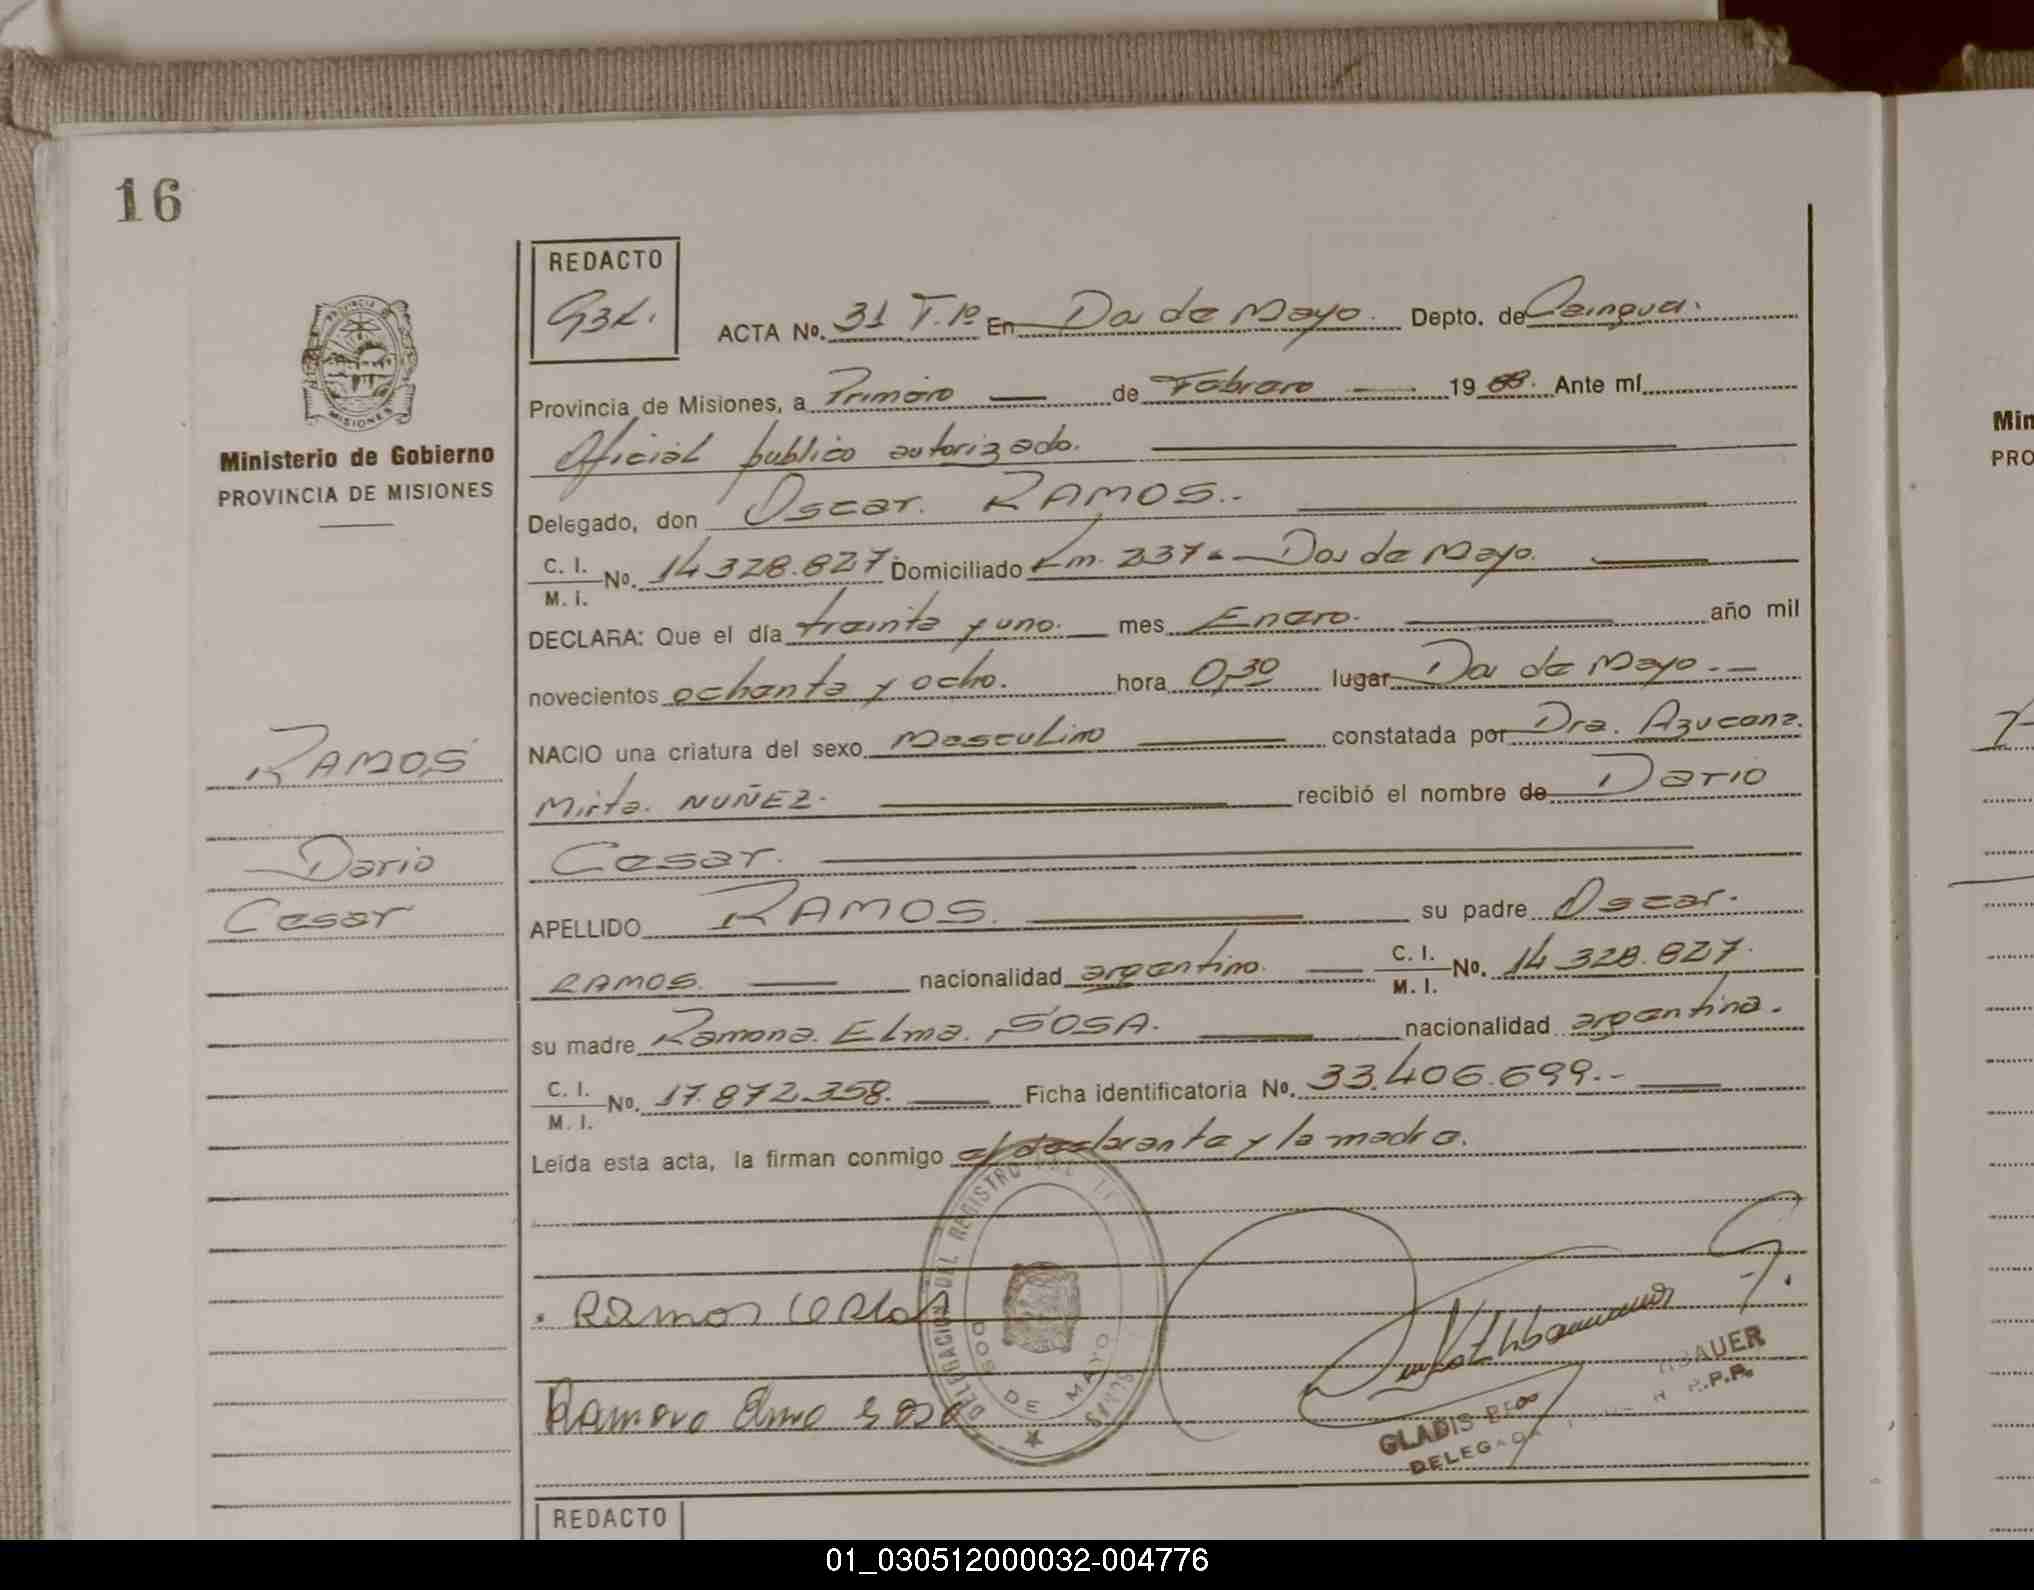 16
REDACTO
G3K.
ACTA No. 31 T.1º En Dos de Mayo. Depto. de Cainguas.
Provincia de Misiones, a Primero de Febrero 1988. Ante mí
Oficial publico autorizado.
Delegado, don Oscar. RAMOS.-
C. I.
M. I. No. 14.328.827. Domiciliado Km. 237 - Dos de Mayo.
DECLARA: Que el día treinta y uno. mes Enero. año mil
novecientos ochenta y ocho. hora 0,30 lugar Dos de Mayo.-
NACIO una criatura del sexo Masculino constatada por Dra. Azucena.
Mirta. NUÑEZ. recibió el nombre de Dario
Cesar.
APELLIDO RAMOS. su padre Oscar.
RAMOS. nacionalidad argentino. C. I.
M. I. No. 14.328.827.
su madre Ramona. Elma. SOSA. nacionalidad argentina.
C. I.
M. I. No. 17.872.358. Ficha identificatoria No. 33.406.699.-
Leída esta acta, la firman conmigo el declarante y la madre.
PROVINCIA DE
MISIONES
Ministerio de Gobierno
PROVINCIA DE MISIONES
RAMOS
Dario
Cesar
Ramos
Ramona Elma Sosa
DELEGACION DEL REGISTRO
DOS DE MAYO
GLADIS
DELEGADA
REDACTO
Min
PRO
01_030512000032-004776